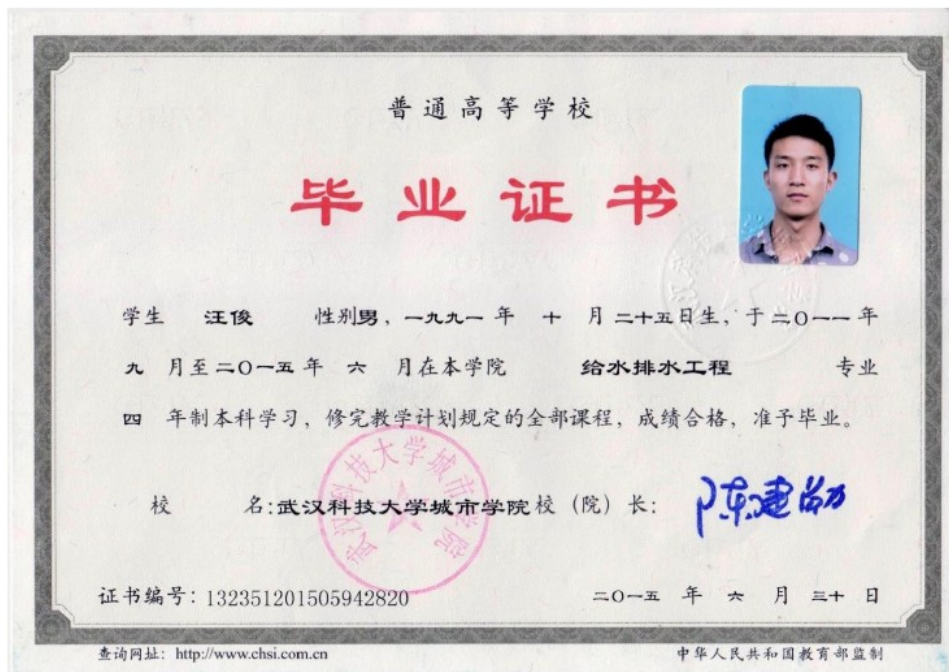 普通高等学校
毕业证书
学生 汪俊 性别男，一九九一年 十 月二十五日生，于二〇一一年
九 月至二〇一五年 六 月在本学院 给水排水工程 专业
四 年制本科学习，修完教学计划规定的全部课程，成绩合格，准予毕业。
武汉科技大学城市学院
校 名:武汉科技大学城市学院校（院）长：
证书编号：132351201505942820 二〇一五 年 六 月 三十 日
查询网址：http://www.chsi.com.cn 中华人民共和国教育部监制